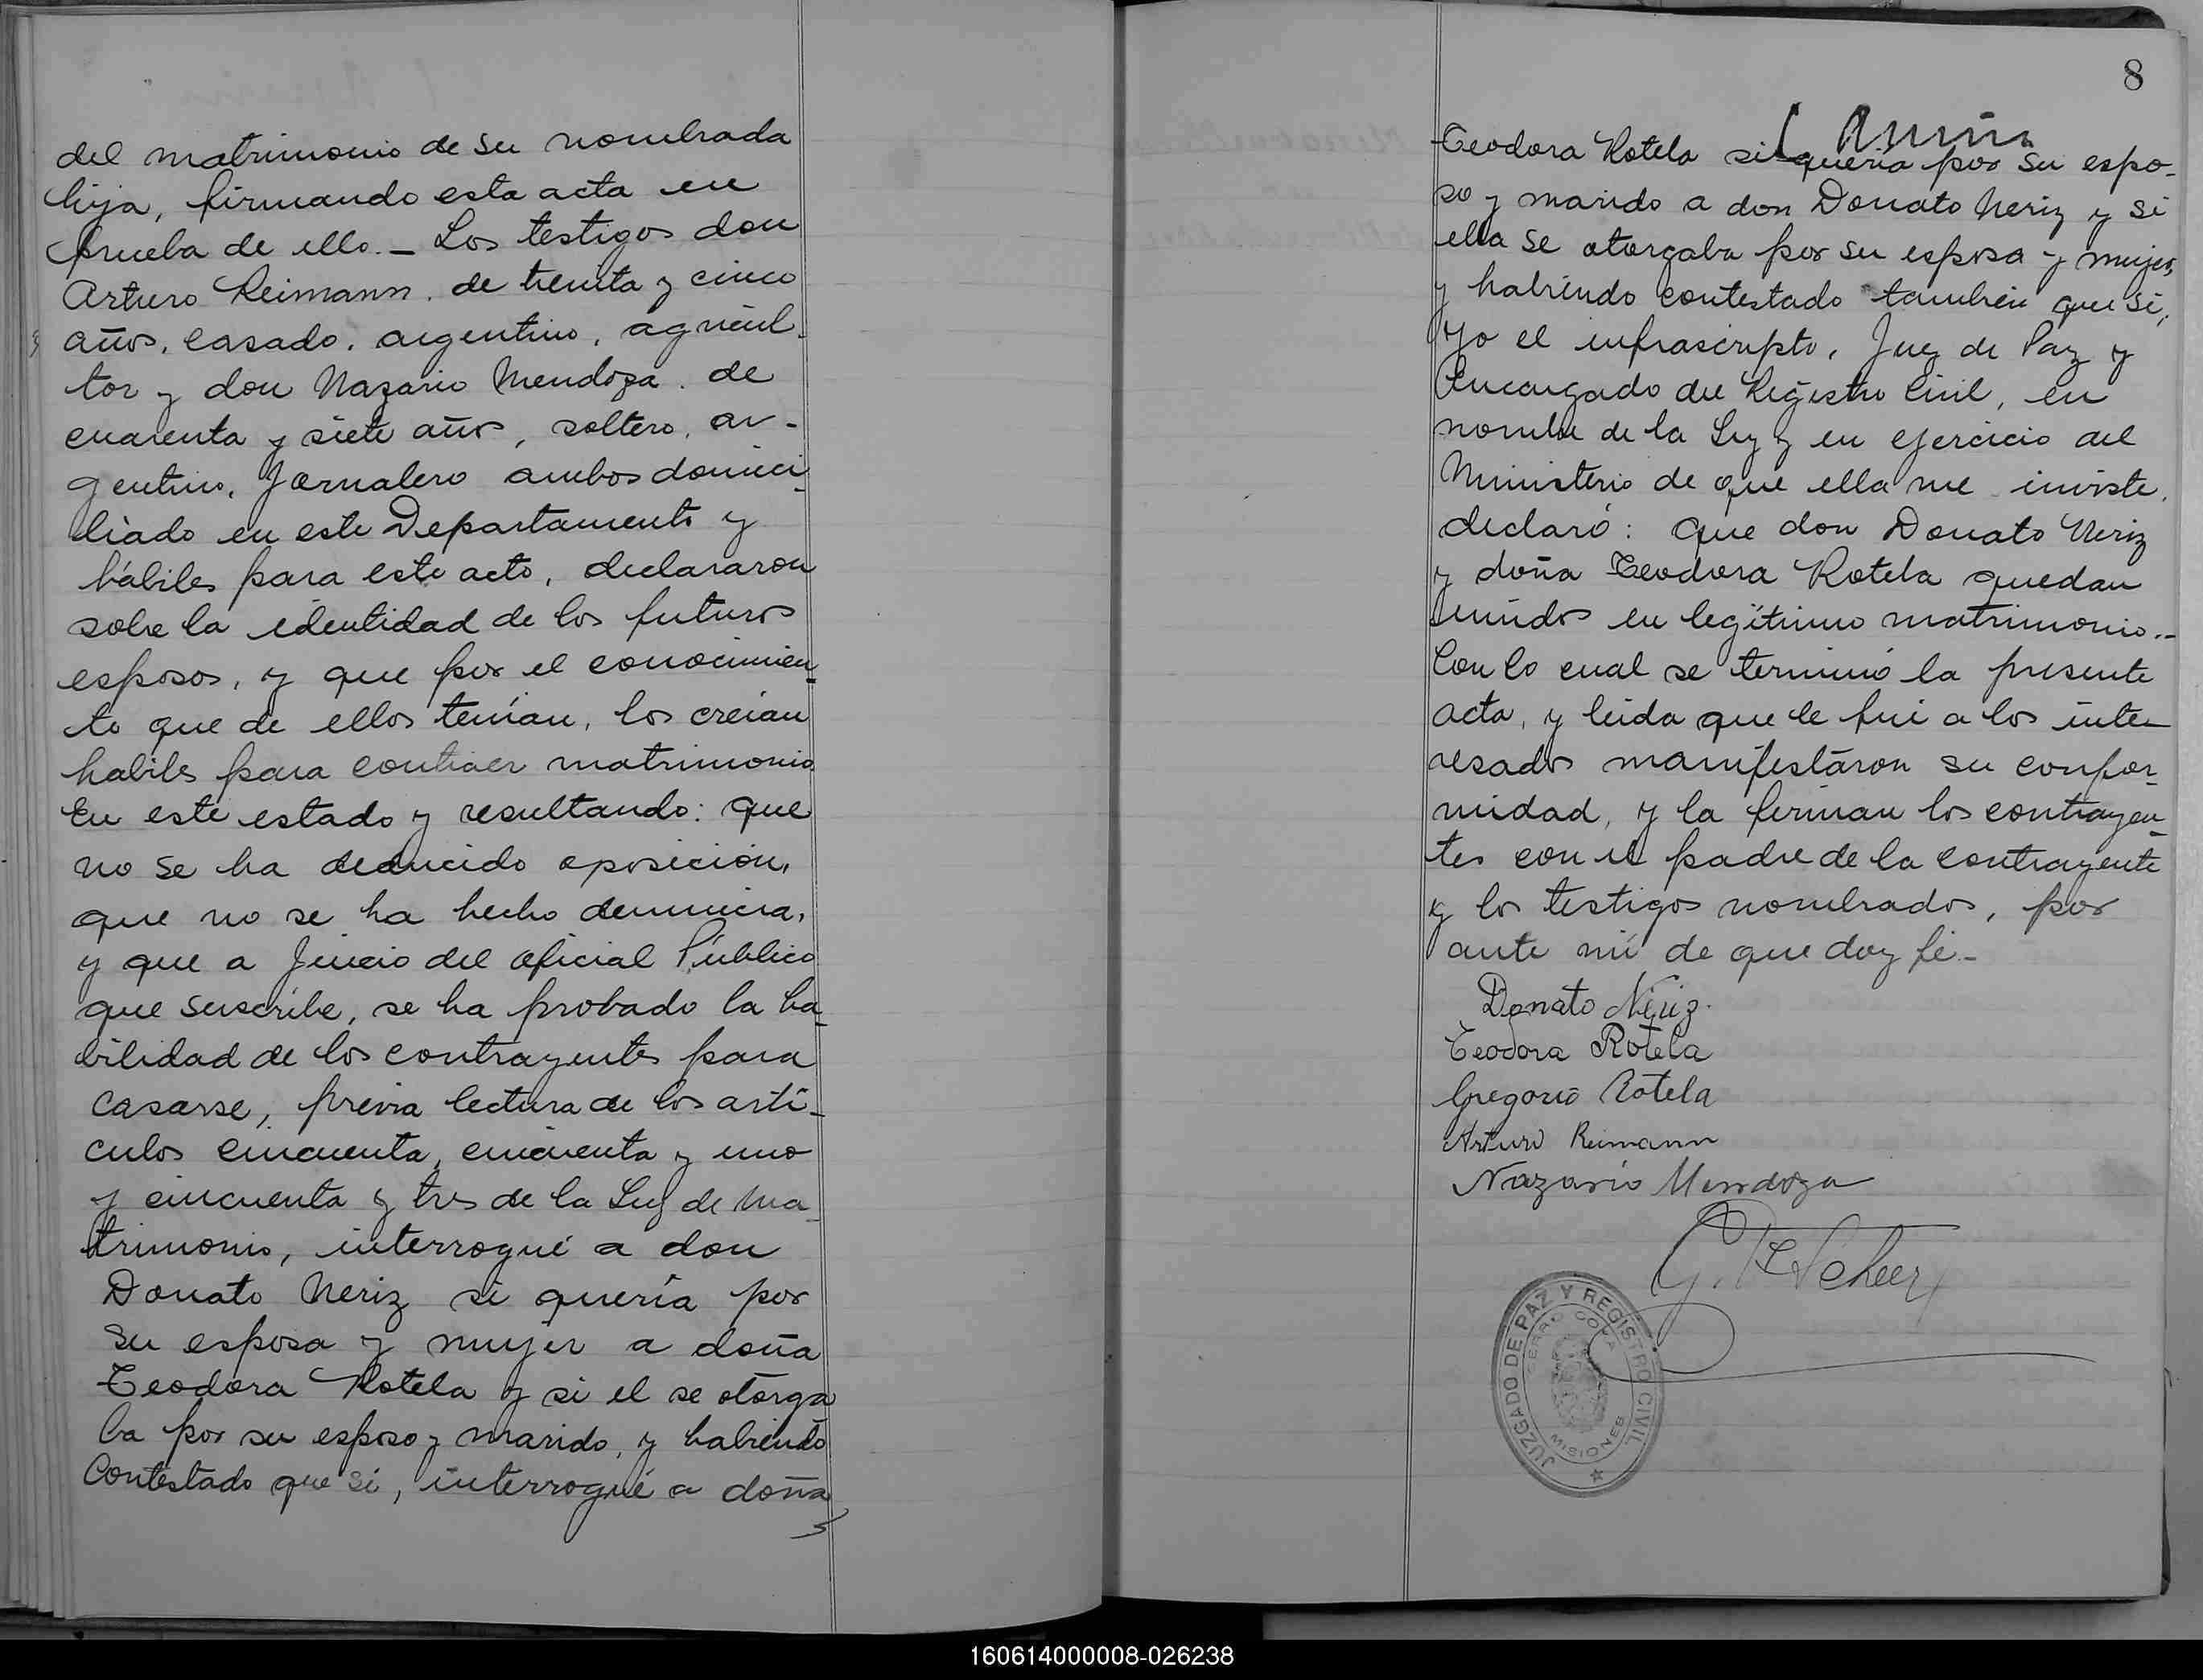 del matrimonio de su nombrada
hija, firmando esta acta en
prueba de ello. — Los testigos don
Arturo Reimann, de treinta y cinco
años, casado, argentino, agricul-
tor y don Nazario Mendoza, de
cuarenta y siete años, soltero, ar-
gentino, Jornalero ambos domici-
liado en este Departamento y
hábiles para este acto, declararon
sobe la identidad de los futuros
esposos, y que por el conocimien-
to que de ellos tenían, los creían
habiles para contraer matrimonio
En este estado y resultando: que
no se ha deducido oposición,
que no se ha hecho denuncia,
y que a Juicio del oficial Público
que suscribe, se ha probado la ha-
bilidad de los contrayentes para
casarse, previa lectura de los artí-
culos cincuenta, cincuenta y uno
y cincuenta y tres de la Ley de Ma-
trimonio, interrogué a don
Donato Neriz si quería por
su esposa y mujer a doña
Teodora Rotela y si el se otorga
ba por su esposo y marido, y habiendo
Contestado que sí, interrogué a doña
8
Teodora Rotela si quería por su espo-
so y marido a don Donato Neriz y si
ella se otorgaba por su esposa y mujer,
y habiendo contestado también que sí,
Yo el infrascripto, Juez de Paz y
Encargado del Registro Civil, en
nombre de la Ley y en ejercicio del
Ministerio de que ella me inviste,
declaró: que don Donato Neriz
y doña Teodora Rotela quedan
unidos en legítimo matrimonio.-
Con lo cual se terminó la presente
acta, y leída que le fué a los inte-
resados manifestáron su confor-
midad, y la firman los contrayen-
tes con el padre de la contrayente
y los testigos nombrados, por
ante mí de que doy fé.-
Donato Neriz.
Teodora Rotela
Gregorio Rotela
Arturo Reimann
Nazario Mendoza
Scheer
JUZGADO DE PAZ Y REGISTRO CIVIL
CERRO CORA
MISIONES
160614000008-026238